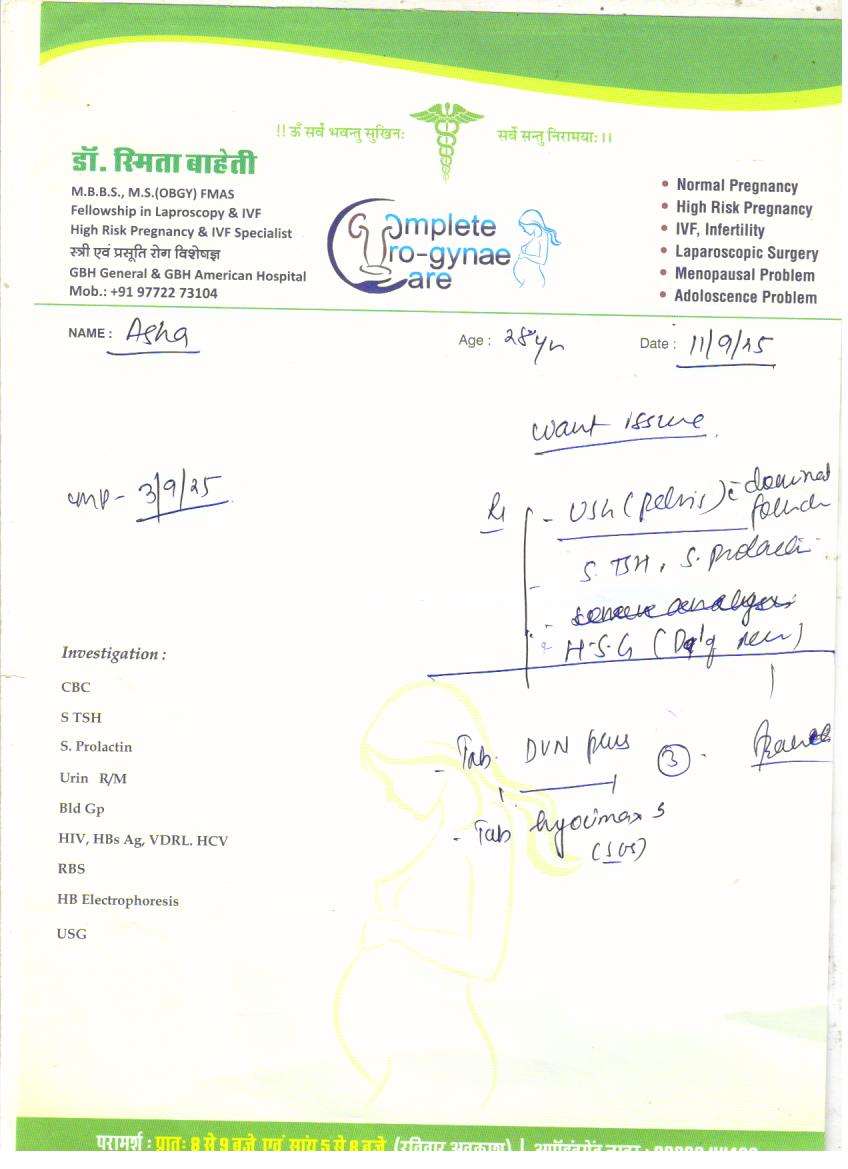 !! ॐ सर्वे भवन्तु सुखिनः सर्वे सन्तु निरामयाः ।।
डॉ. स्मिता बाहेती
M.B.B.S., M.S.(OBGY) FMAS
Fellowship in Laproscopy & IVF
High Risk Pregnancy & IVF Specialist
स्त्री एवं प्रसूति रोग विशेषज्ञ
GBH General & GBH American Hospital
Mob.: +91 97722 73104
Complete
Uro-gynae
Care
• Normal Pregnancy
• High Risk Pregnancy
• IVF, Infertility
• Laparoscopic Surgery
• Menopausal Problem
• Adoloscence Problem
NAME : Asha Age : 28 yr Date : 11/9/25
want issue
LMP - 3/9/25
Rx - USG (pelvis)
- S. TSH, S. Prolactin
- semen analysis
- H.S.G
- Tab. DVN plus (3)
- Tab hyocimax S
(SOS)
Investigation :
CBC
S TSH
S. Prolactin
Urin R/M
Bld Gp
HIV, HBs Ag, VDRL. HCV
RBS
HB Electrophoresis
USG
परामर्श : प्रातः 8 से 9 बजे एवं सायं 5 से 8 बजे (रविवार अवकाश) |